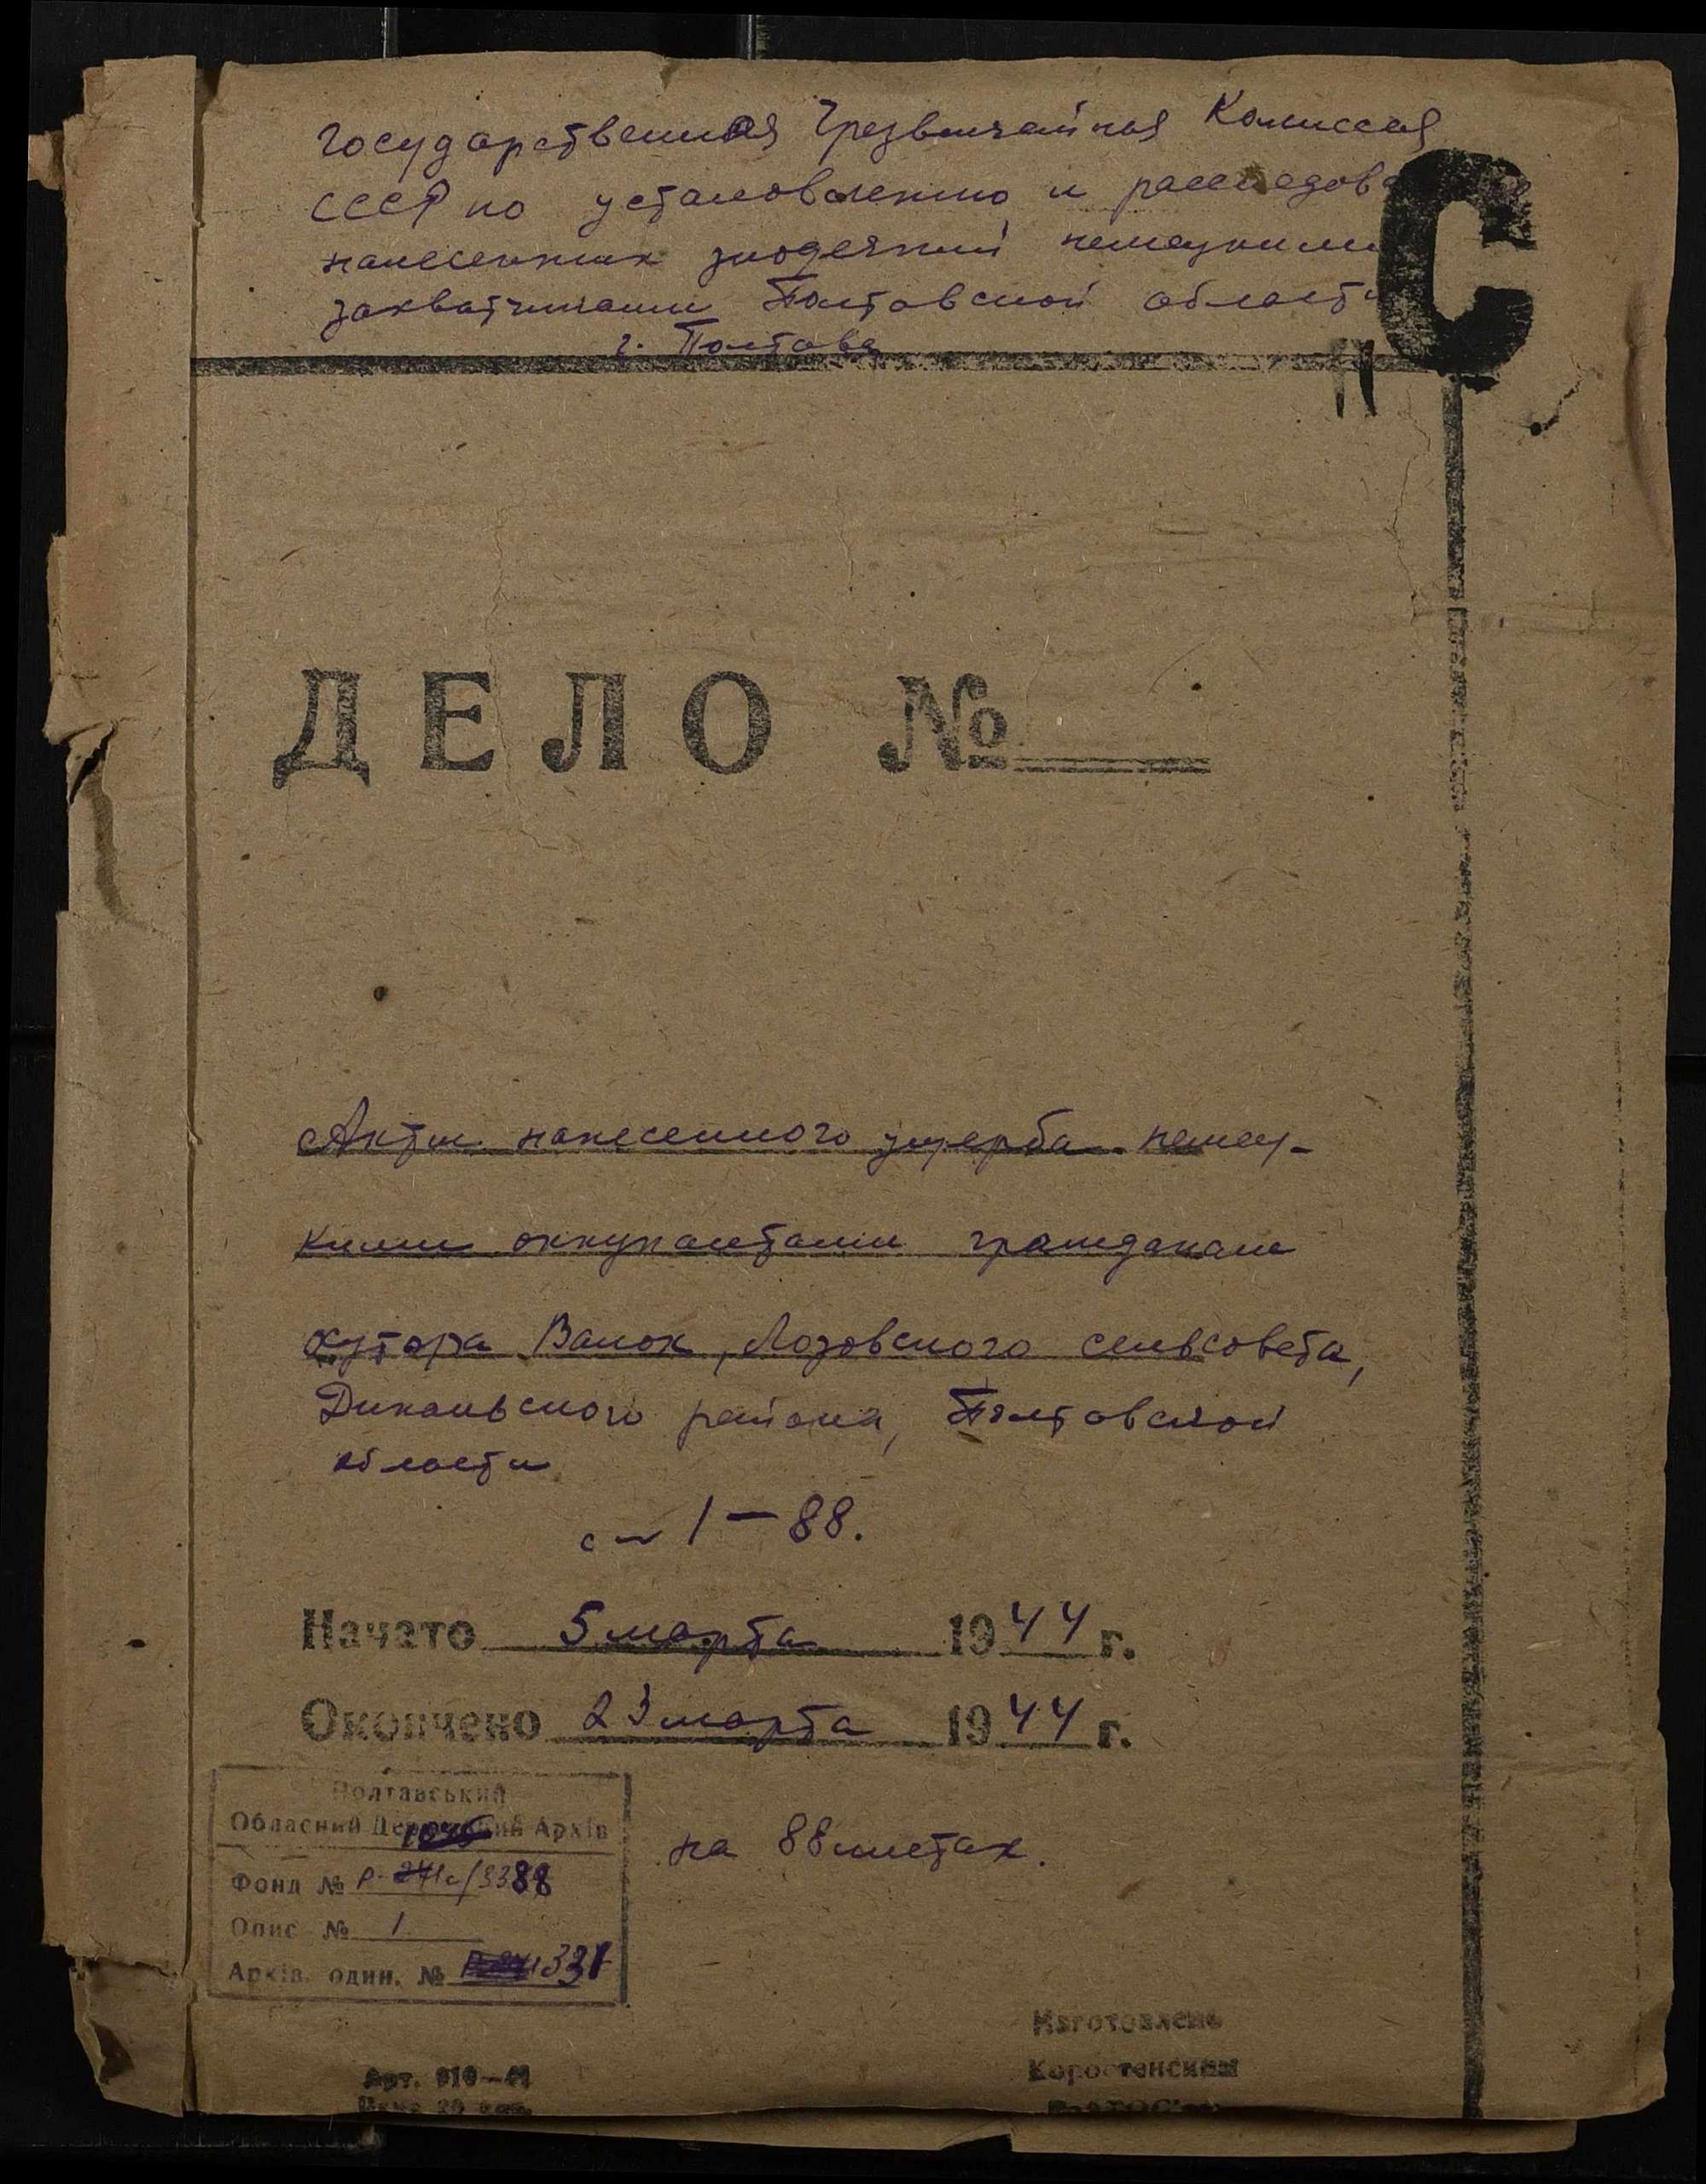 Государственная Чрезвычайная Комиссия
СССР по установлению и расследов
нанесенных злодеяний немецкими
захватчиками Полтавской области
г. Полтава
С
ДЕЛО №
Акты нанесенного ущерба немец-
кими оккупантами гражданам
хутора Валок, Лозовского сельсовета,
Диканьского района, Полтавской
области
с 1 – 88.
Начато 5 марта 1944 г.
Окончено 23 марта 1944 г.
Полтавський
Обласний Державний Архів
на 88 листах.
Фонд № Р- /3388
Опис № 1
Архів. один. № 331
Изготовлено
Коростенским
Арт. 010—41
Цена 20 коп.